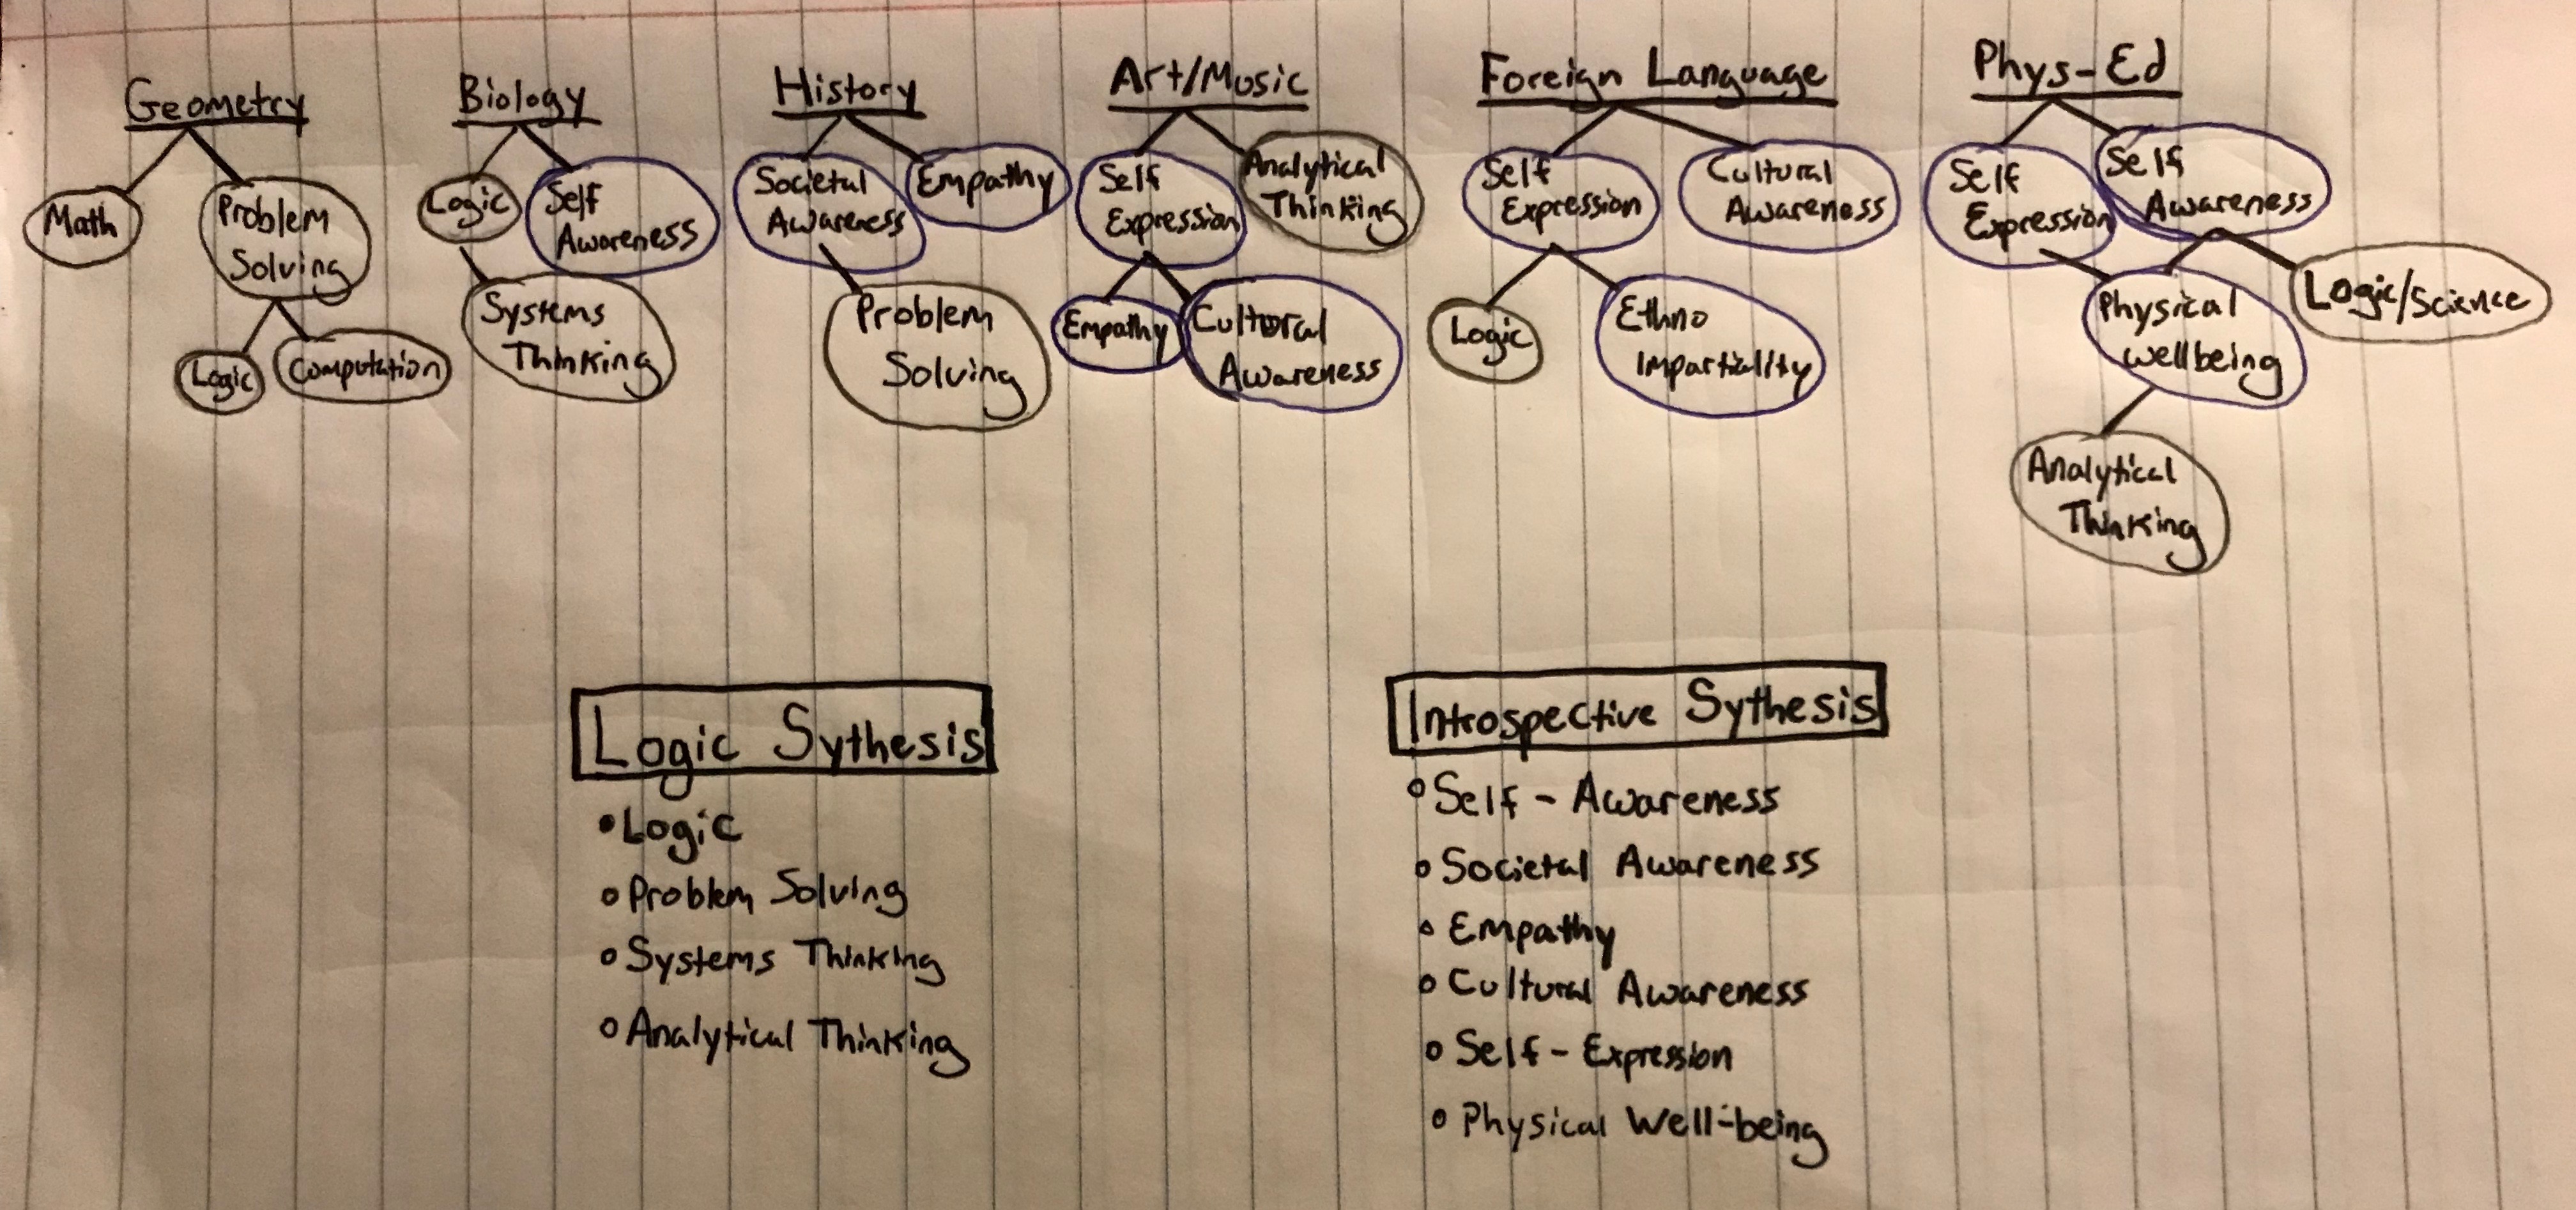 Geometry
Math
Problem
Solving
Logic
Computation
Biology
Logic
Self
Awareness
Systems
Thinking
History
Societal
Awareness
Empathy
Problem
Solving
Art/Music
Self
Expression
Analytical
Thinking
Empathy
Cultural
Awareness
Foreign Language
Self
Expression
Cultural
Awareness
Logic
Ethno
Impartiality
Phys-Ed
Self
Expression
Self
Awareness
Physical
Wellbeing
Logic/Science
Analytical
Thinking
Logic Sythesis
• Logic
• Problem Solving
• Systems Thinking
• Analytical Thinking
Introspective Sythesis
• Self-Awareness
• Societal Awareness
• Empathy
• Cultural Awareness
• Self-Expression
• Physical Well-being